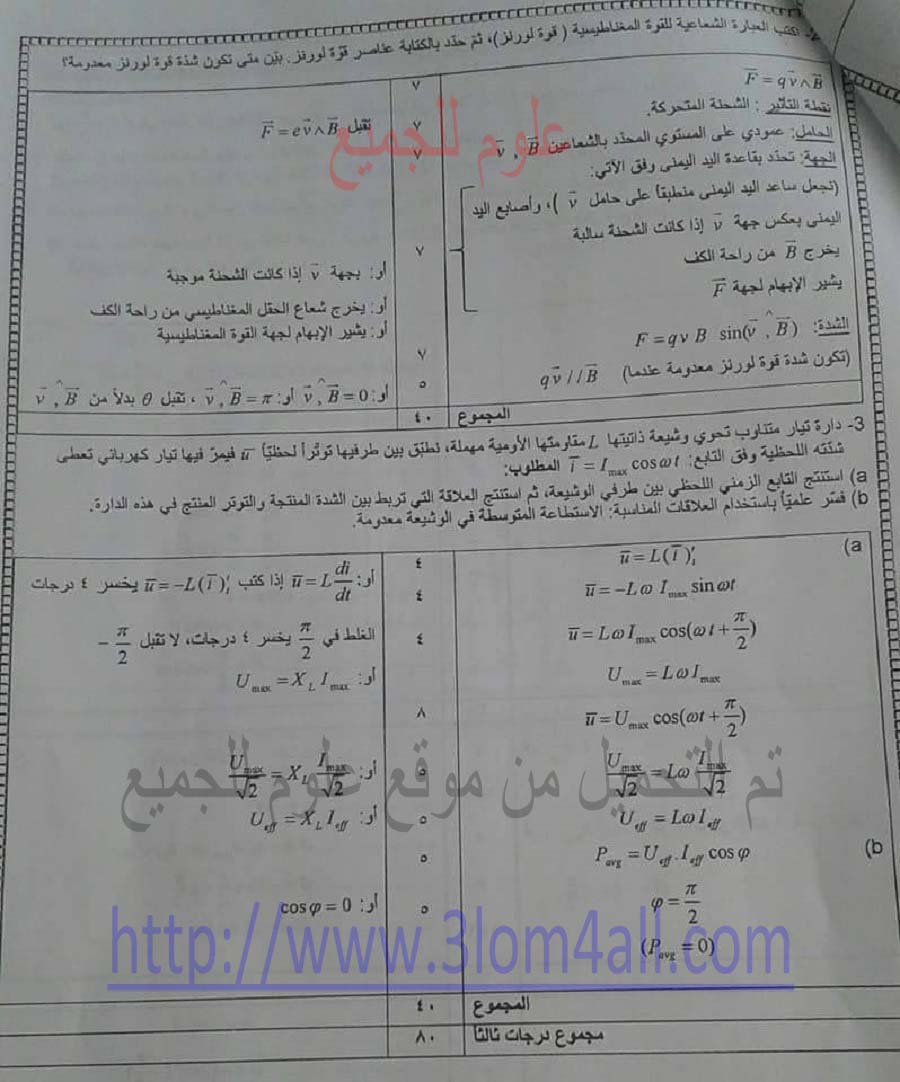 2- تكتب العبارة الشعاعية للقوة المغناطيسية ( قوة لورنز)، ثم حدّد بالكتابة عناصر قوّة لورنز. بيّن متى تكون شدة قوة لورنز معدومة؟
F = qv∧B ٧
نقطة التأثير : الشحنة المتحركة. ٧ تقبل F = ev∧B
الحامل: عمودي على المستوي المحدّد بالشعاعين v , B ٧
الجهة: تحدّد بقاعدة اليد اليمنى وفق الآتي:
(نجعل ساعد اليد اليمنى منطبقاً على حامل v )، وأصابع اليد
اليمنى بعكس جهة v إذا كانت الشحنة سالبة ٧ أو: بجهة v إذا كانت الشحنة موجبة
يخرج B من راحة الكف أو: يخرج شعاع الحقل المغناطيسي من راحة الكف
يشير الإبهام لجهة F أو: يشير الإبهام لجهة القوة المغناطيسية
الشدة: F = qvB sin(v , B) ٧
(تكون شدة قوة لورنز معدومة عندما) qv // B ٥ أو: v , B = 0 أو: v , B = π ، تقبل θ بدلاً من v , B
المجموع ٤٠
علوم للجميع
3- دارة تيار متناوب تحوي وشيعة ذاتيتها L مقاومتها الأومية مهملة، نطبّق بين طرفيها توتّراً لحظيّاً u فيمرّ فيها تيار كهربائي تعطى
شدّته اللحظية وفق التابع: i = Imax cos ωt المطلوب:
a) استنتج التابع الزمني اللحظي بين طرفي الوشيعة، ثم استنتج العلاقة التي تربط بين الشدة المنتجة والتوتر المنتج في هذه الدارة.
b) فسّر علمياً باستخدام العلاقات المناسبة: الاستطاعة المتوسطة في الوشيعة معدومة.
a) u = L(i)′t ٤ أو: u = L di/dt إذا كتب u = −L(i)′t يخسر ٤ درجات
u = −Lω Imax sin ωt ٤
u = Lω Imax cos(ωt + π/2) ٤ الغلط في π/2 يخسر ٤ درجات، لا تقبل − π/2
Umax = Lω Imax أو: Umax = XL Imax
u = Umax cos(ωt + π/2) ٨
Umax/√2 = Lω Imax/√2 ٥ أو: Umax/√2 = XL Imax/√2
Ueff = Lω Ieff ٥ أو: Ueff = XL Ieff
b) Pavg = Ueff . Ieff cos φ ٥
φ = π/2 ٥ أو: cos φ = 0
(Pavg = 0)
المجموع ٤٠
مجموع درجات ثالثاً ٨٠
تم التحميل من موقع علوم للجميع
http://www.3lom4all.com